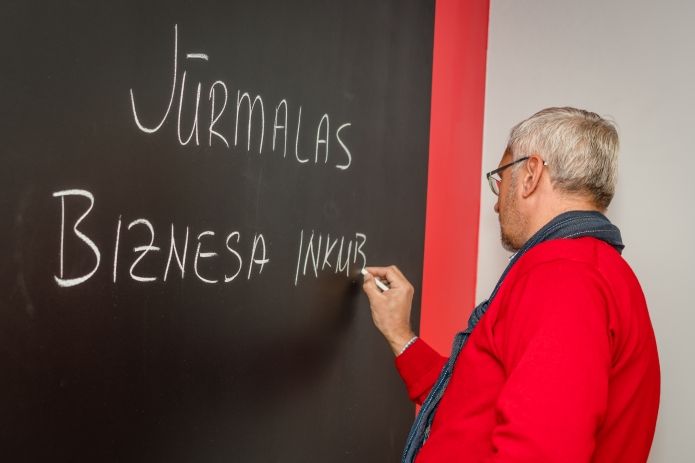 JŪRMALAS
BIZNESA INKUB